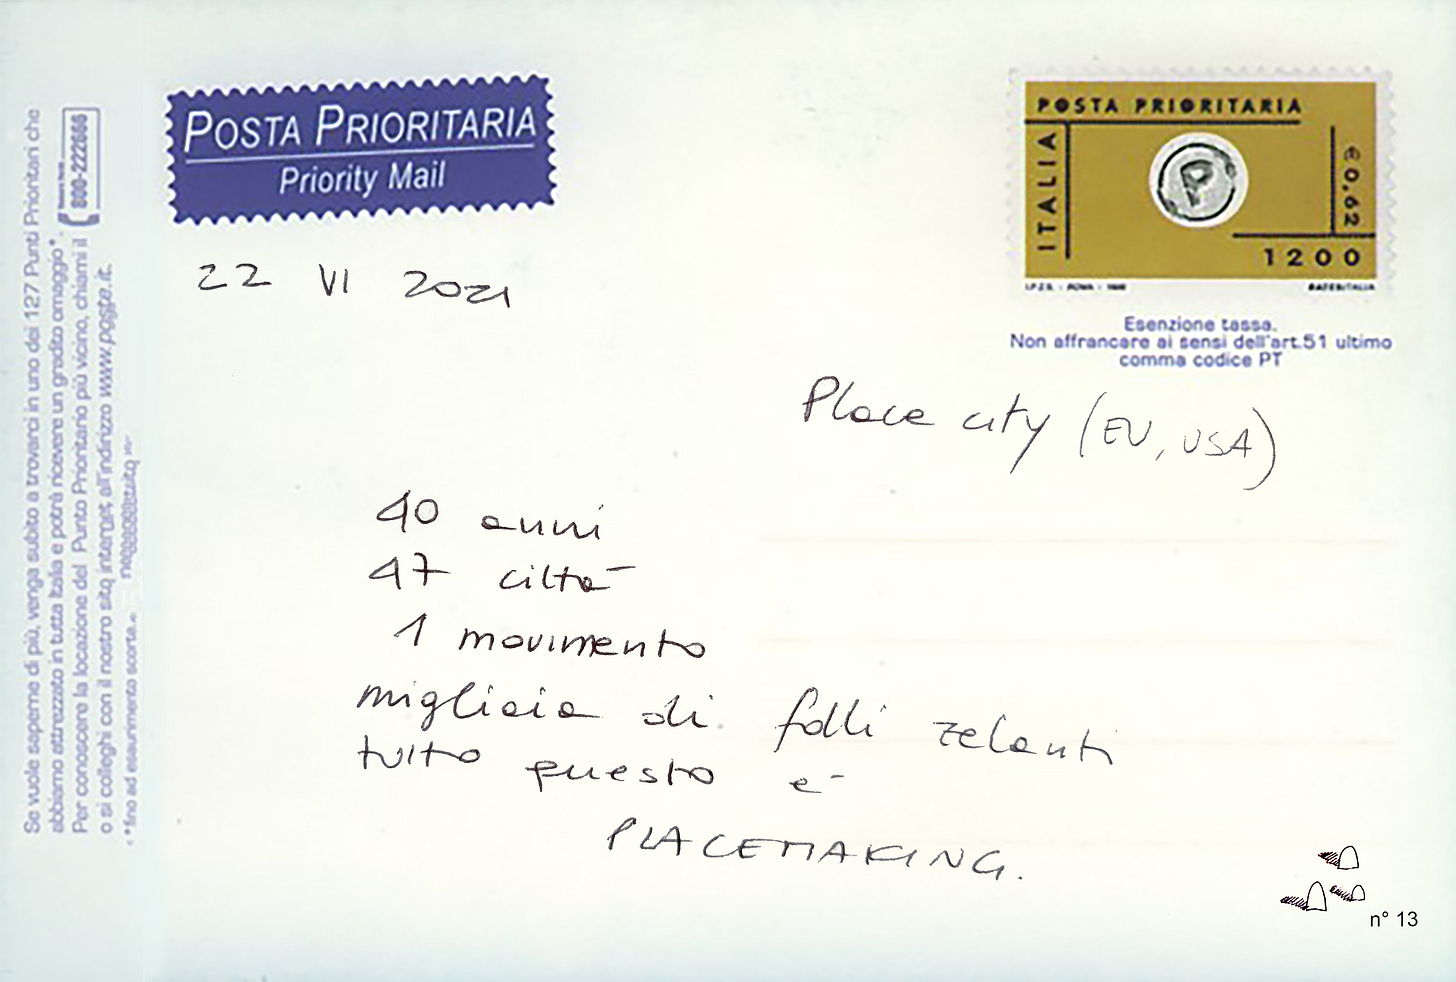 POSTA PRIORITARIA
Priority Mail
POSTA PRIORITARIA
ITALIA
€ 0,62
1200
I.P.Z.S. - ROMA - 1999
P
Esenzione tassa.
Non affrancare ai sensi dell'art.51 ultimo
comma codice PT
22 VI 2021
Place city (EU, USA)
40 anni
47 città
1 movimento
migliaia di folli zelanti
tutto questo è
PLACEMAKING.
n° 13
Se vuole saperne di più, venga subito a trovarci in uno dei 127 Punti Prioritari che
abbiamo attrezzato in tutta Italia e potrà ricevere un gradito omaggio*.
Per conoscere la locazione del Punto Prioritario più vicino, chiami il
800-222666
o si colleghi con il nostro sito internet all'indirizzo www.poste.it.
*fino ad esaurimento scorte.